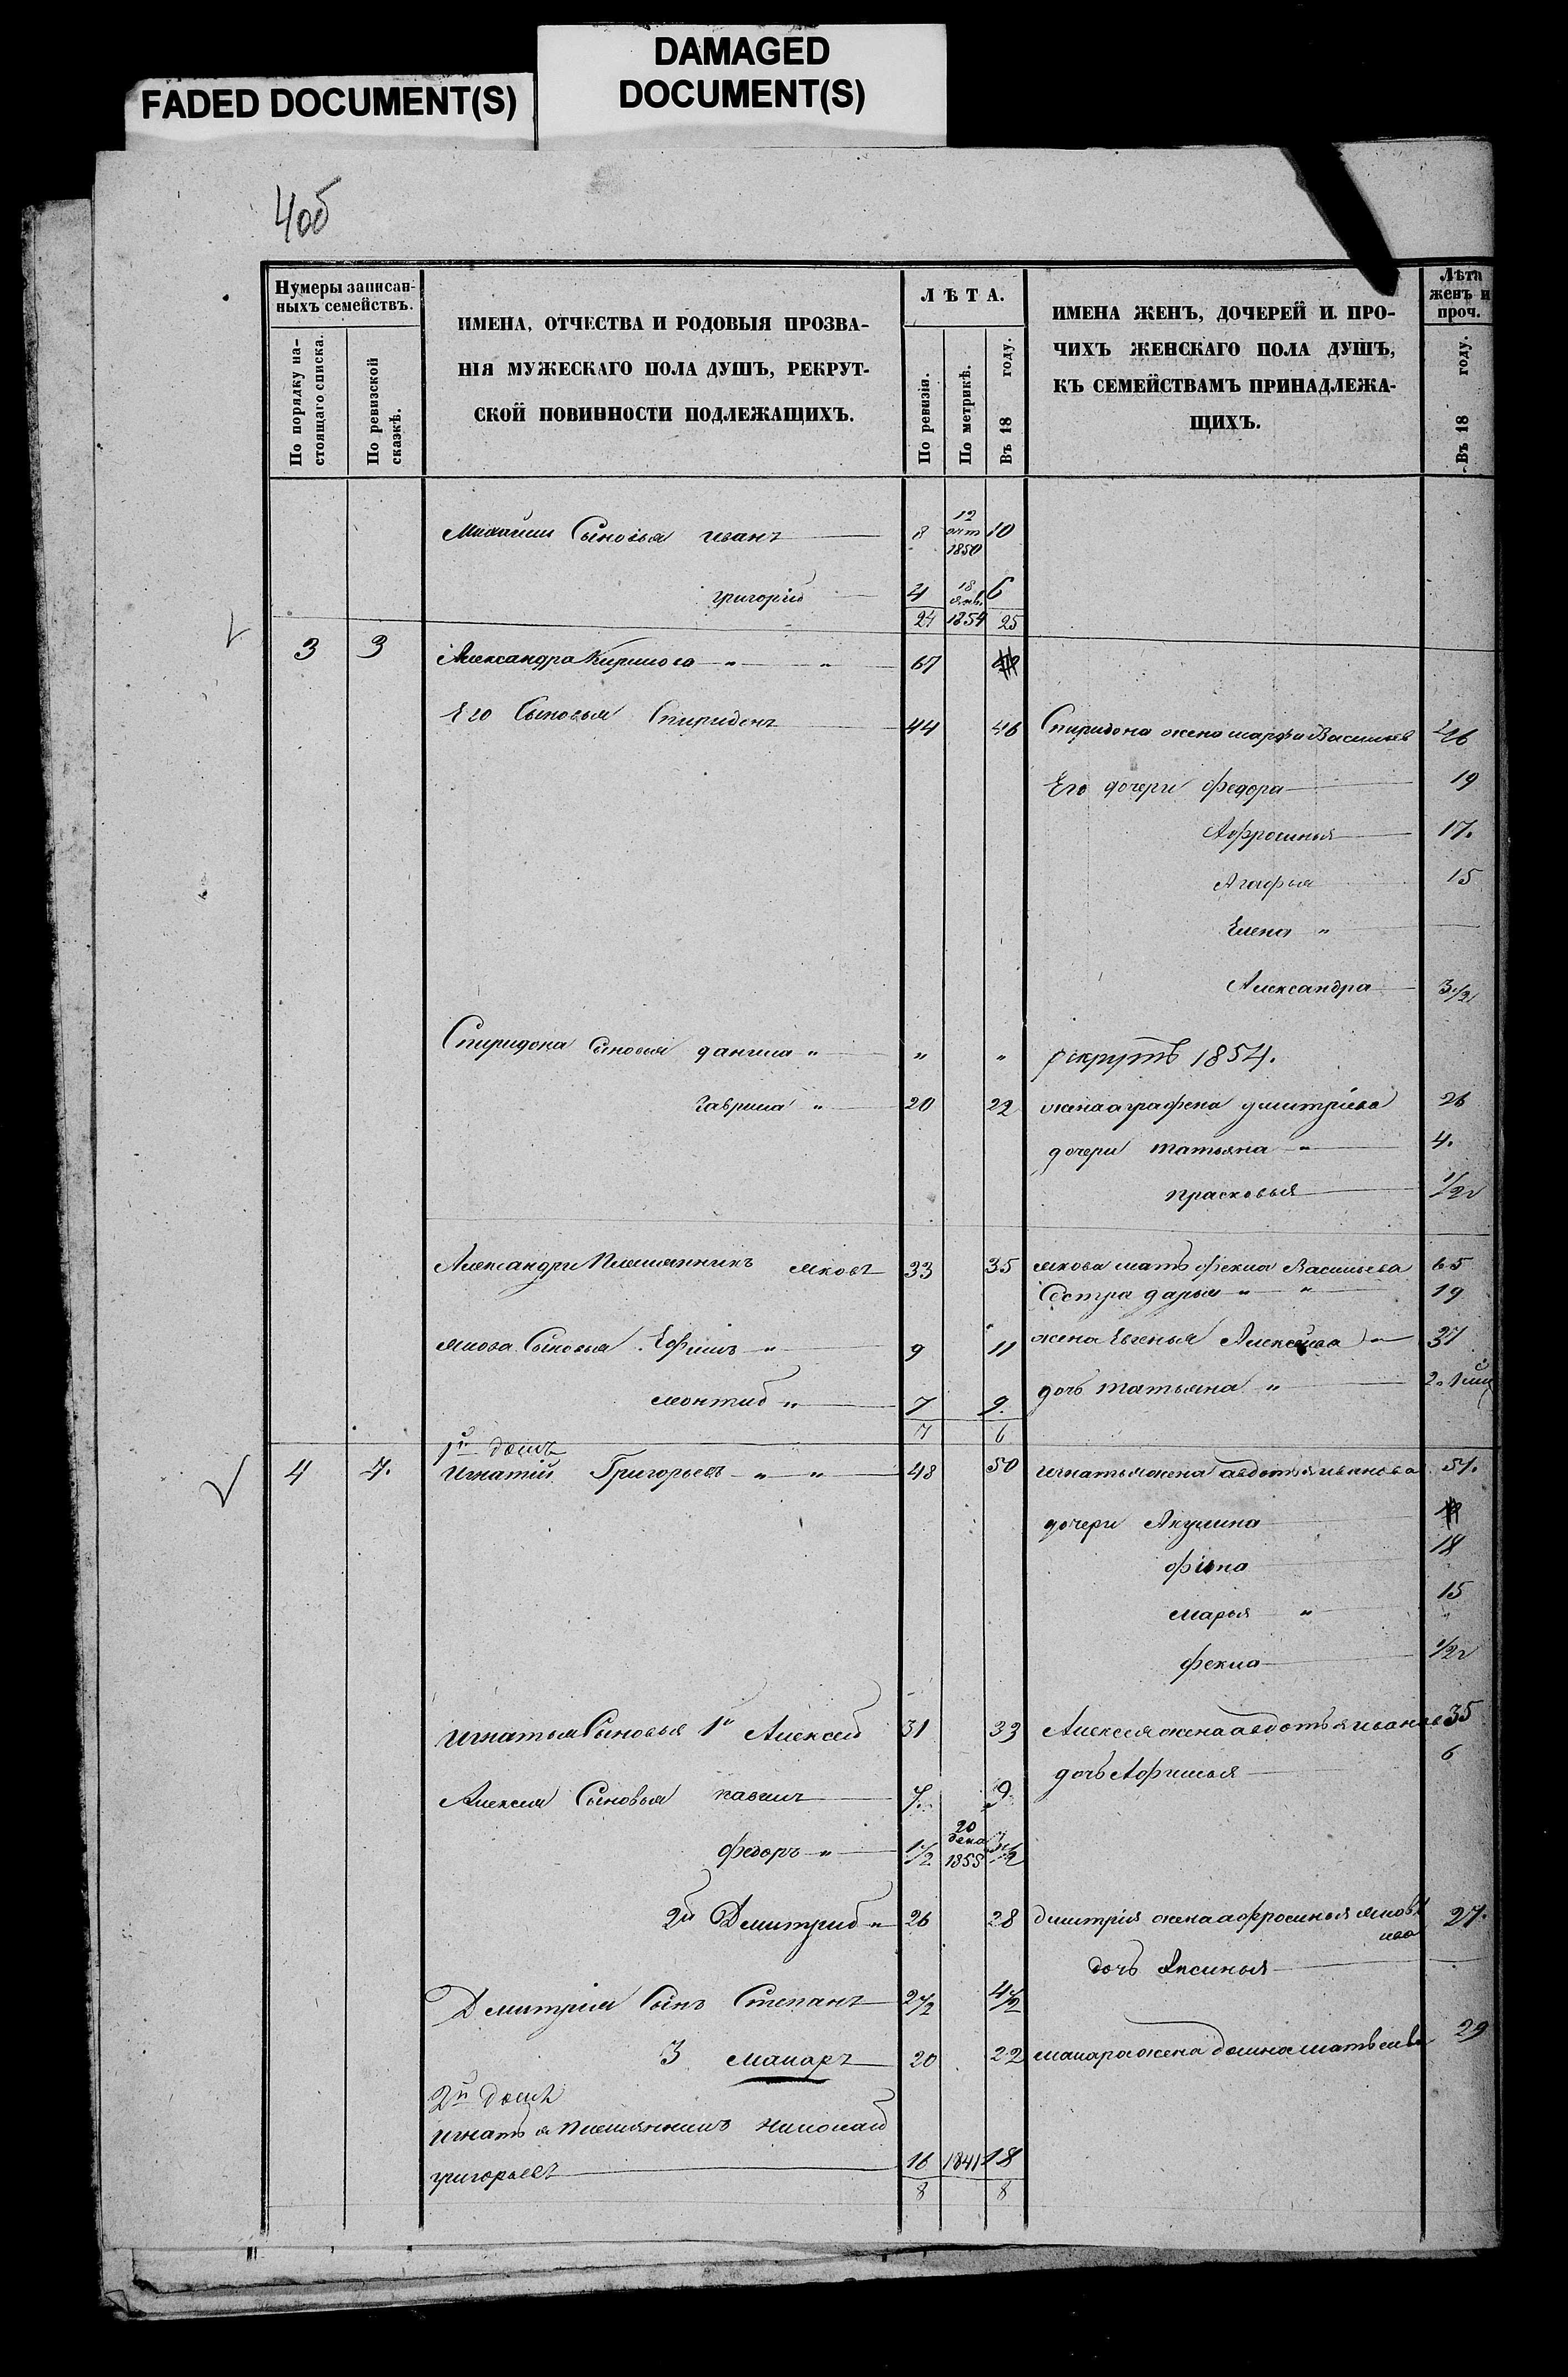 FADED DOCUMENT(S)
DAMAGED
DOCUMENT(S)
4об
Нумеры записан-
ныхъ семействъ.
По порядку на-
стоящаго списка.
По ревизской
сказкѣ.
ИМЕНА, ОТЧЕСТВА И РОДОВЫЯ ПРОЗВА-
НІЯ МУЖЕСКАГО ПОЛА ДУШЪ, РЕКРУТ-
СКОЙ ПОВИННОСТИ ПОДЛЕЖАЩИХЪ.
ЛѢТА.
По ревизіи.
По метрикѣ.
Въ 18 году.
ИМЕНА ЖЕНЪ, ДОЧЕРЕЙ И ПРО-
ЧИХЪ ЖЕНСКАГО ПОЛА ДУШЪ,
КЪ СЕМЕЙСТВАМЪ ПРИНАДЛЕЖА-
ЩИХЪ.
Лѣта
женъ и
проч.
Въ 18 году.
Михайлы Сыновья иванъ 8 12 окт 1850 10
григорій 4 18 янв. 1854 6
24 25
3 3 Александра Кирилова " " 67
Его Сыновья Спиридонъ 44 46 Спиридона жена марфа Васильев 46
Его дочери федора 19
Афросинья 17.
Агафья 15
Елена "
Александра 3 1/2
Спиридона Сыновья данила " " " рекрутъ 1854.
Гаврила " 20 22 жена аграфена дмитріева 26
дочери татьяна " 4.
прасковья 1/2 г
Александры Племянникъ яковъ 33 35 якова мать фекла Васильева 65
Сестра дарья " " 19
якова Сыновья Ефимъ " 9 11 жена Евгенья Алексѣева " 37
леонтий " 7 9. дочь татьяна " 2.
7 6
1й домъ
4 4. игнатій Григорьевъ " " 48 50 игнатья жена авдотья иванова 51.
дочери Акулина
18
марья " 15
фекла 1/2 г
игнатья Сыновья 1й Алексей 31 33 Алексея жена авдотья иванов 35
дочь Афимья 6
Алексея Сыновья павелъ 7. 9.
федоръ " 1/2 20 дека 1855 2 1/2
2й Дмитрий " 26 28 дмитрія жена афросинья яковл
ива 27.
дочь Аксинья
Дмитрия Сынъ Степанъ 2 1/2 4 1/2
3 макаръ 20 22 макара жена домна матвеива 29
2й домъ
игнатья племянникъ николай
григорьевъ 16 1841 18
8 8